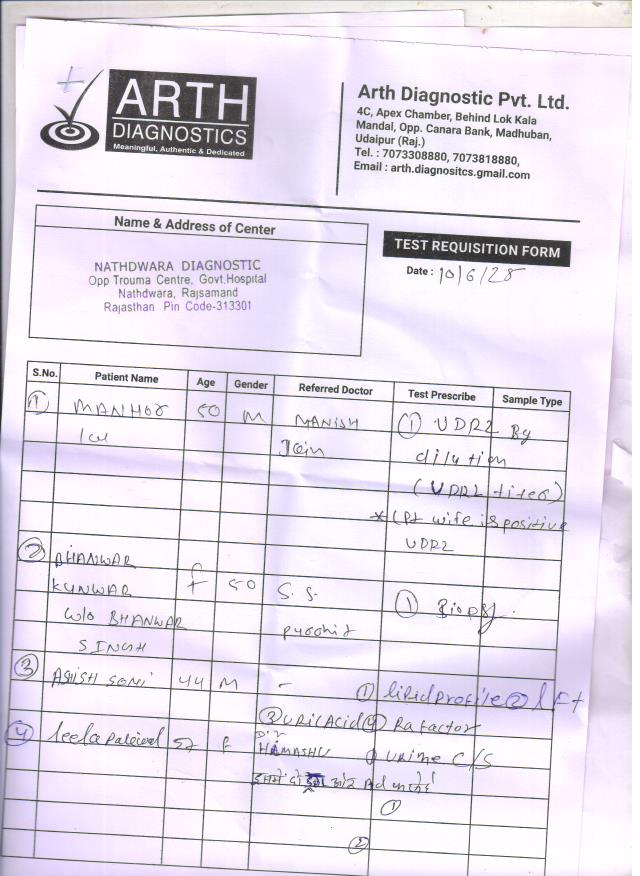 ARTH
DIAGNOSTICS
Meaningful, Authentic & Dedicated
Arth Diagnostic Pvt. Ltd.
4C, Apex Chamber, Behind Lok Kala
Mandal, Opp. Canara Bank, Madhuban,
Udaipur (Raj.)
Tel. : 7073308880, 7073818880,
Email : arth.diagnositcs.gmail.com
Name & Address of Center
NATHDWARA DIAGNOSTIC
Opp Trouma Centre, Govt.Hospital
Nathdwara, Rajsamand
Rajasthan Pin Code-313301
TEST REQUISITION FORM
Date : 10/6/25
S.No. Patient Name Age Gender Referred Doctor Test Prescribe Sample Type
① MANHOR 50 M MANISH ① VDRL By
lal Jain dilution
(VDRL titer)
* (Pt wife is positive
VDRL
② BHANWAR
KUNWAR F 50 S. S. ① Biopsy.
W/o BHANWAR purohit
SINGH
③ ASHISH SONI 44 M - ① lipid profile ② LFt
③ URIC ACID ④ Ra factor
④ leela paleiwal 57 F Dr HIMASHU ① urine C/S
①
②